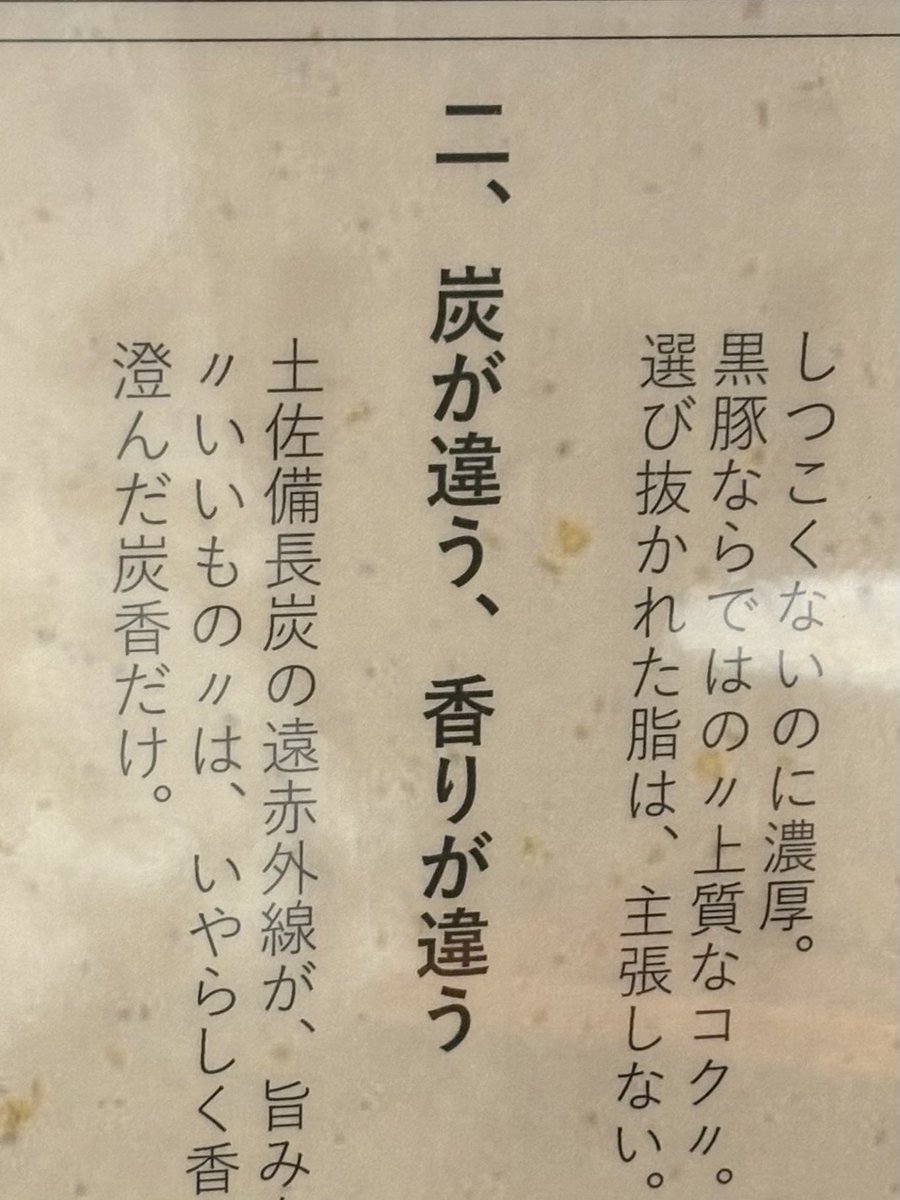 しつこくないのに濃厚。
黒豚ならではの〃上質なコク〃。
選び抜かれた脂は、主張しない。
二、炭が違う、香りが違う
土佐備長炭の遠赤外線が、旨み
〃いいもの〃は、いやらしく香
澄んだ炭香だけ。